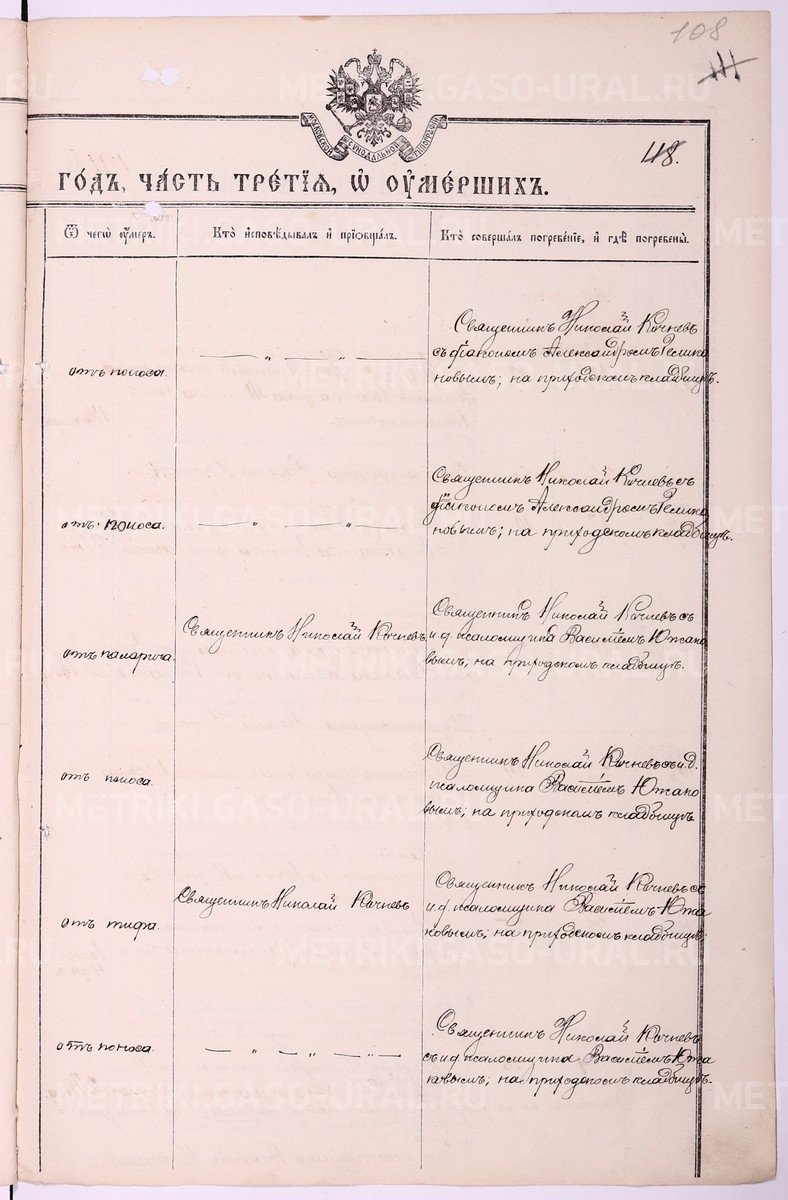 108
118.
Московской Синодальной Типографіи
ГОДЪ, ЧАСТЬ ТРЕТІѦ, Ѡ ОУМЕРШИХЪ.
Ѿ чегѡ оумеръ.
Кто исповѣдывалъ и пріобщалъ.
Кто совершалъ погребеніе, и гдѣ погребены.
отъ поноса.
— „ — „ —
Священникъ Николай Кичневъ
съ діакономъ Александромъ Гелика
новымъ; на приходскомъ кладбищѣ.
отъ поноса.
— „ — „ —
Священникъ Николай Кичневъ съ
діакономъ Александромъ Гелика
новымъ; на приходскомъ кладбищѣ.
отъ
Священникъ Николай Кичневъ
Священникъ Николай Кичневъ съ
и.д. псаломщика Василіемъ Южако
вымъ; на приходскомъ кладбищѣ.
отъ поноса.
Священникъ Николай Кичневъ съ и.д.
псаломщика Василіемъ Южако
вымъ; на приходскомъ кладбищѣ.
отъ тифа.
Священникъ Николай Кичневъ
Священникъ Николай Кичневъ съ
и.д. псаломщика Василіемъ Южа
ковымъ; на приходскомъ кладбищѣ.
отъ поноса.
— „ — „ — „ —
Священникъ Николай Кичневъ
съ и.д. псаломщика Василіемъ Южа
ковымъ; на приходскомъ кладбищѣ.
METRIKI.GASO-URAL.RU